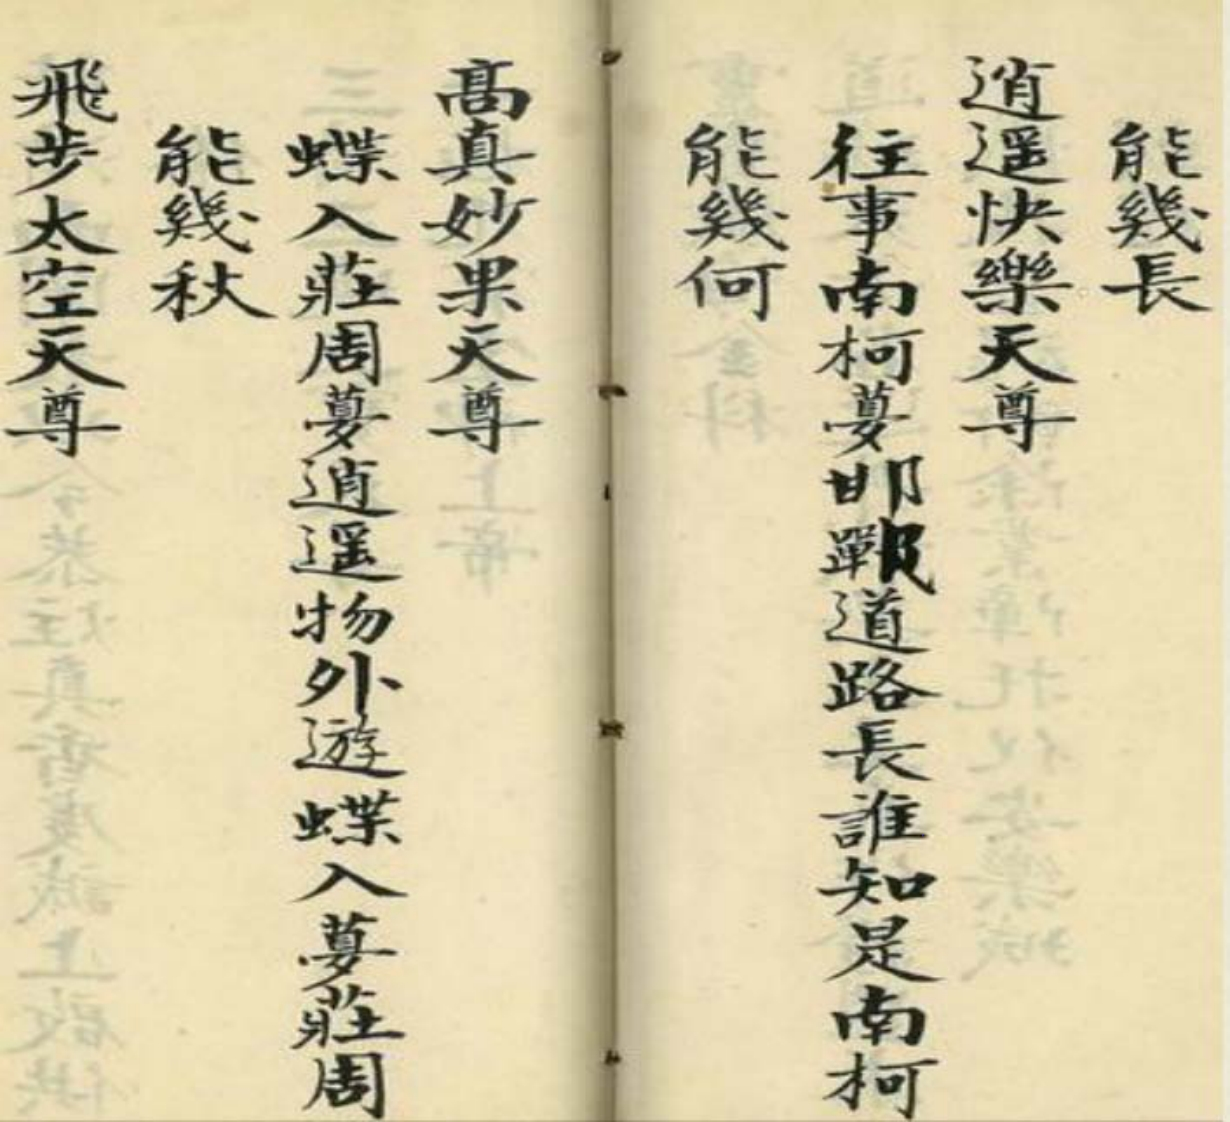 能幾長
逍遥快樂天尊
往事南柯夢邯鄲道路長誰知是南柯
能幾何
高真妙果天尊
蝶入莊周夢逍遥物外遊蝶入夢莊周
能幾秋
飛步太空天尊